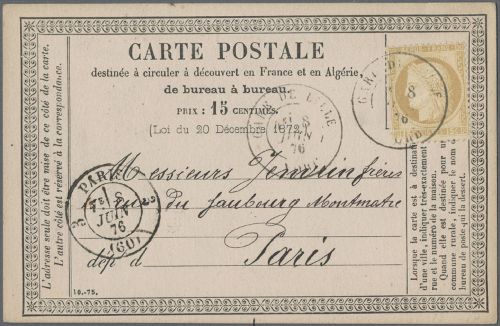 CARTE POSTALE
destinée à circuler à découvert en France et en Algérie,
de bureau à bureau.
PRIX : 15 CENTIMES.
(Loi du 20 Décembre 1872.)
L'adresse seule doit être mise de ce côté de la carte.
L'autre côté est réservé à la correspondance.
Messieurs frères
du faubourg Montmatre
Paris
dép d
Lorsque la carte est à destination
d'une ville, indiquer très-exactement
la rue et le numéro de la maison.
Quand elle est à destination d'une
commune rurale, indiquer le nom du
bureau de poste qui la dessert.
PARIS
8
JUIN
76
(60)
DE LILLE
8
JUIN
76
8
76
10.-75.